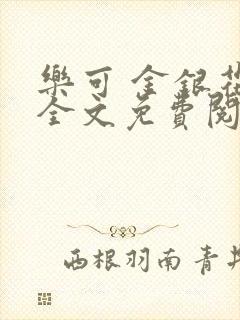 樂可 金銀花
全文免費閱
西根羽南青